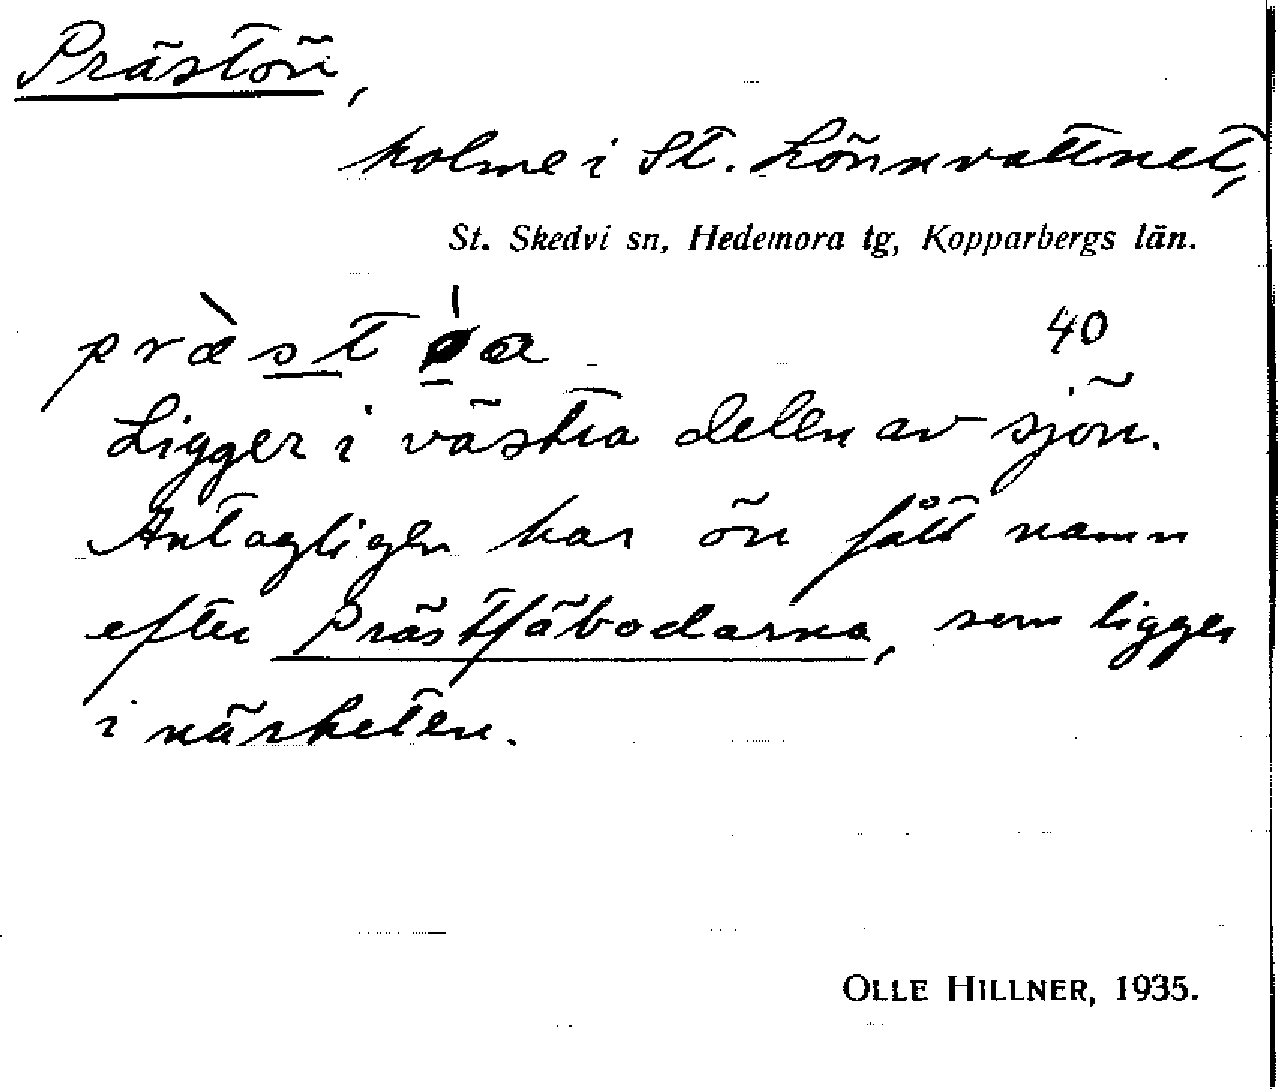 Prästön,
holme i St. Lönnvattnet,
St. Skedvi sn, Hedemora tg, Kopparbergs län.
præ̀stø̍a 40
Ligger i västra delen av sjön.
Antagligen har ön fått namn
efter Prästfäbodarna, som ligger
i närheten.
OLLE HILLNER, 1935.